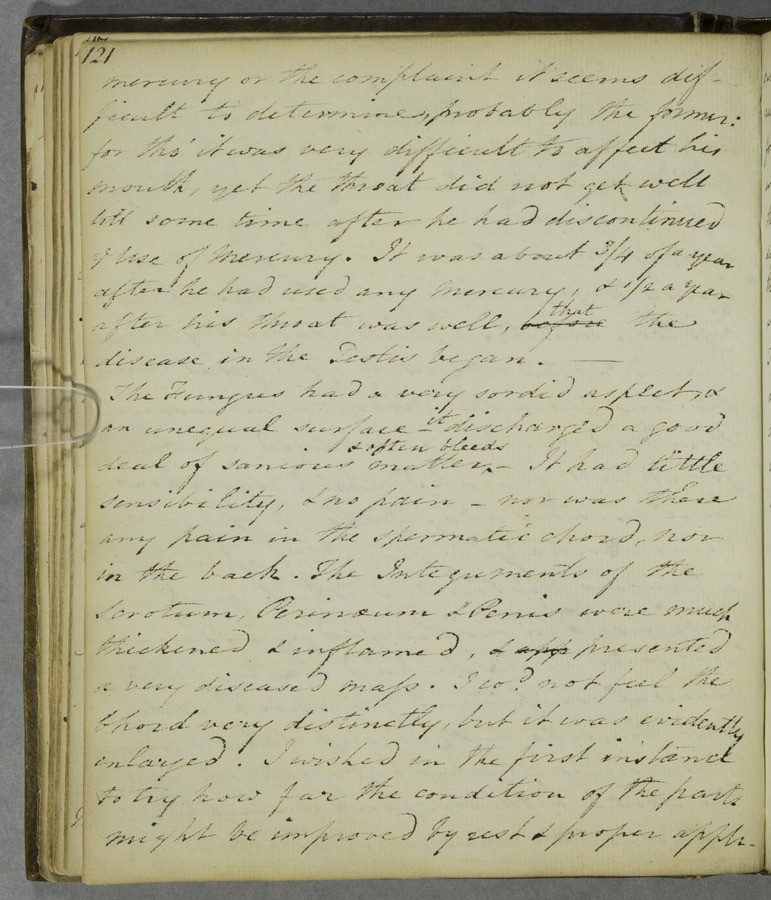 121
mercury or the complaint it seems dif-
ficult to determine, probably the former:
for tho' it was very difficult to affect his
mouth, yet the throat did not get well
till some time after he had discontinued
ye use of Mercury. It was about 3/4 of a year
after he had used any Mercury, & 1/2 a year
after his throat was well, before that the
disease in the Testis began. —
The Fungus had a very sordid aspect, &
an unequal surface - it discharged a good
deal of sanious matter, & often bleeds - It had little
sensibility, & no pain - nor was there
any pain in the spermatic chord, nor
in the back. The Integuments of the
Scrotum, Perinæum & Penis were much
thickened & inflamed, & app presented
a very diseased mass. I cod. not feel the
Chord very distinctly, but it was evidently
enlarged. I wished in the first instance
to try how far the condition of the parts
might be improved by rest & proper appli-